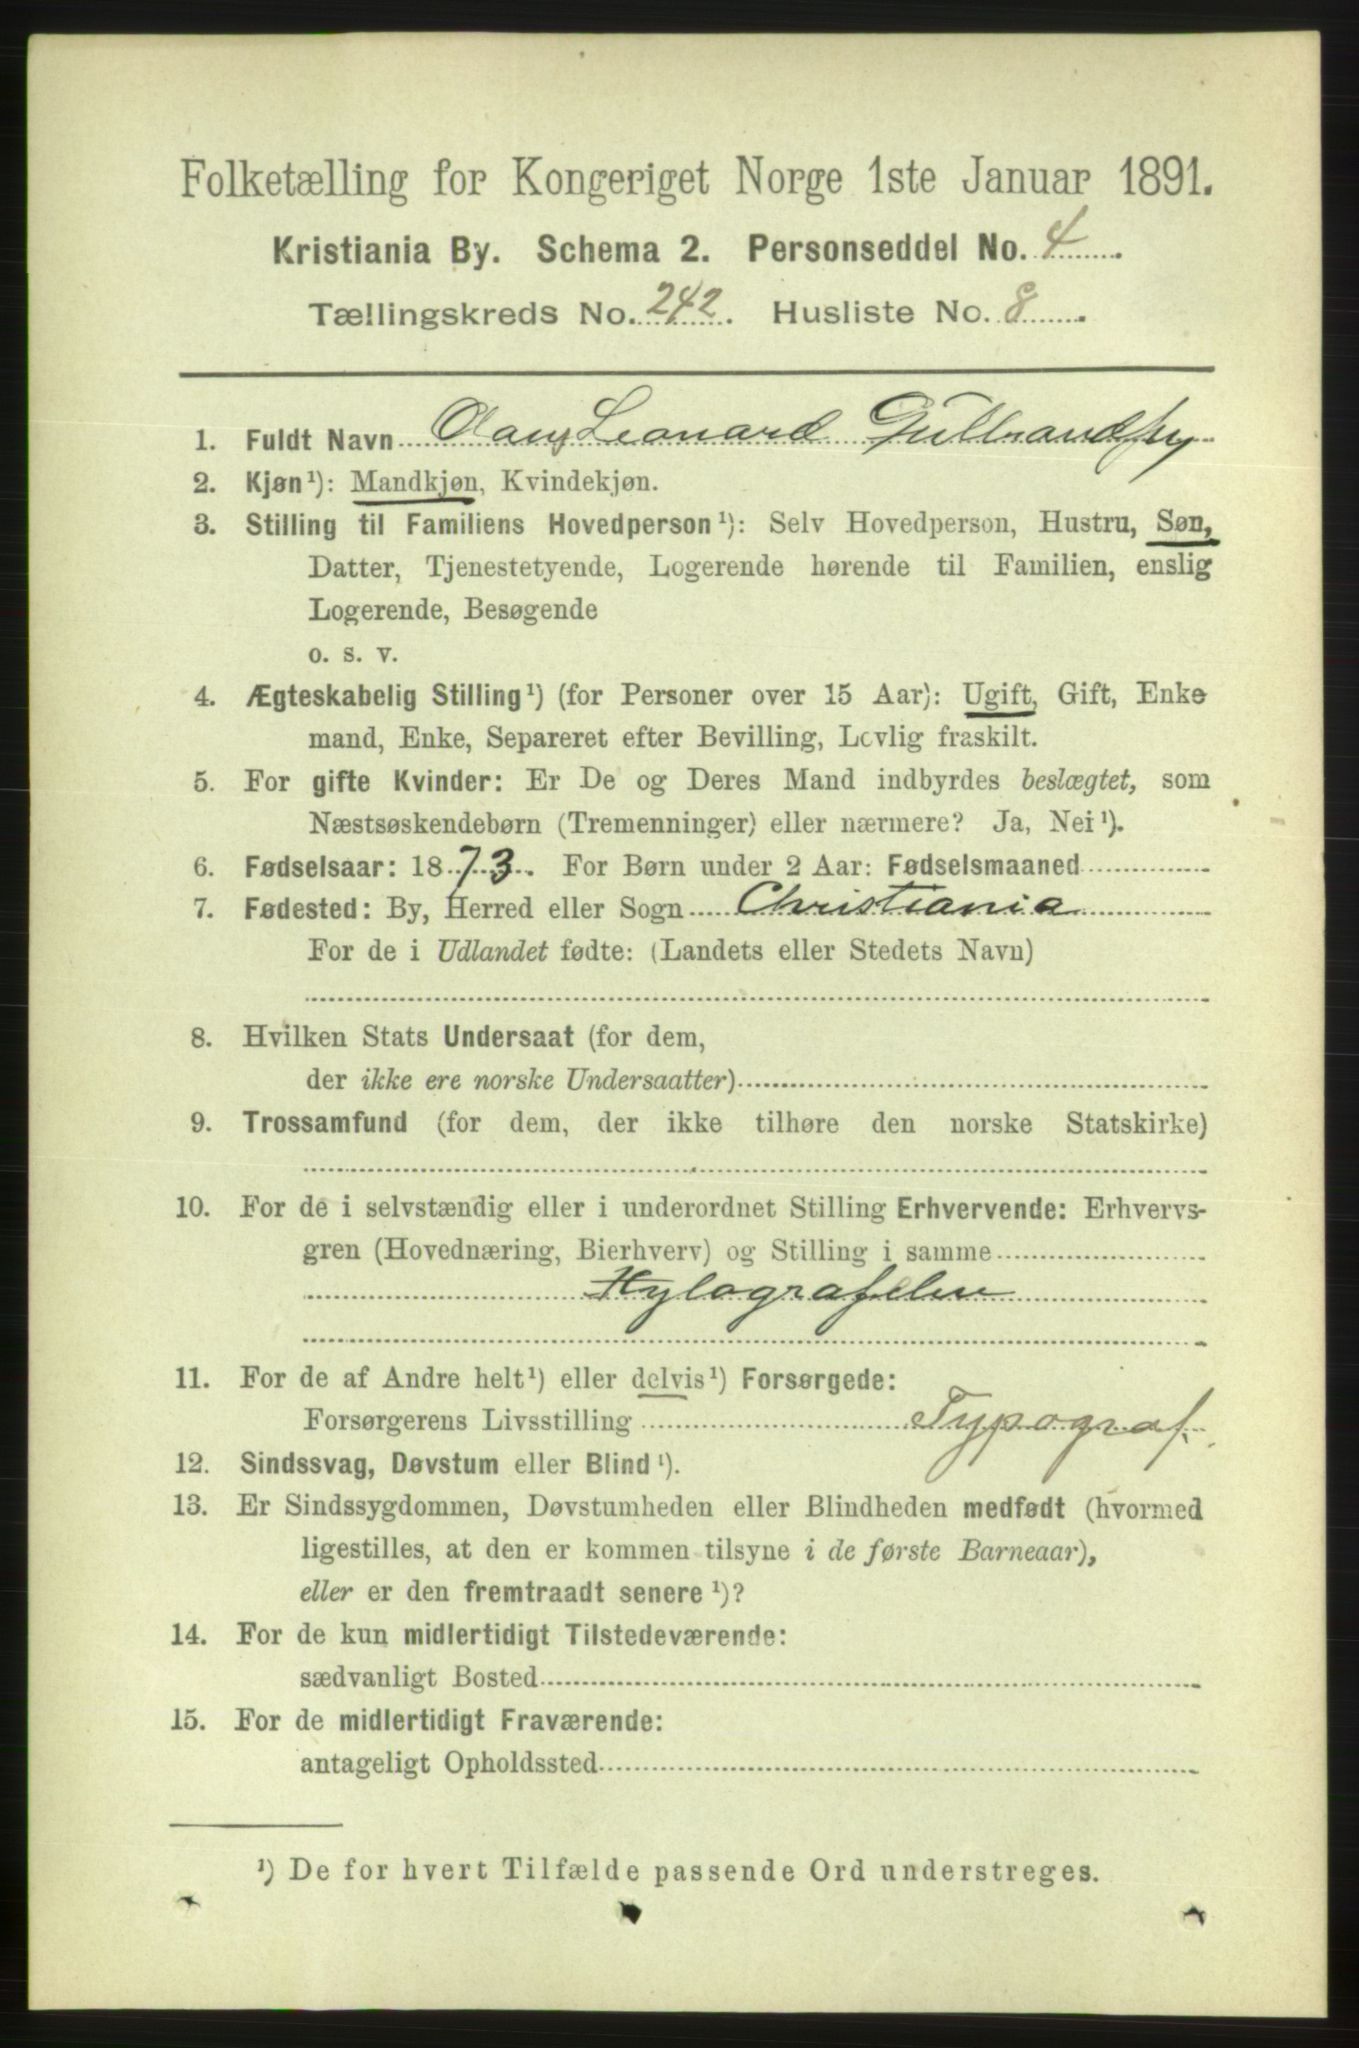 Folketælling for Kongeriget Norge 1ste Januar 1891.
Kristiania By. Schema 2. Personseddel No. 4.
Tællingskreds No. 242. Husliste No. 8.
1. Fuldt Navn Leonard
2. Kjøn¹): Mandkjøn, Kvindekjøn.
3. Stilling til Familiens Hovedperson¹): Selv Hovedperson, Hustru, Søn,
Datter, Tjenestetyende, Logerende hørende til Familien, enslig
Logerende, Besøgende
o. s. v.
4. Ægteskabelig Stilling¹) (for Personer over 15 Aar): Ugift, Gift, Enke
mand, Enke, Separeret efter Bevilling, Lovlig fraskilt.
5. For gifte Kvinder: Er De og Deres Mand indbyrdes beslægtet, som
Næstsøskendebørn (Tremenninger) eller nærmere? Ja, Nei¹).
6. Fødselsaar: 1873. For Børn under 2 Aar: Fødselsmaaned
7. Fødested: By, Herred eller Sogn Christiania
For de i Udlandet fødte: (Landets eller Stedets Navn)
8. Hvilken Stats Undersaat (for dem,
der ikke ere norske Undersaatter)
9. Trossamfund (for dem, der ikke tilhøre den norske Statskirke)
10. For de i selvstændig eller i underordnet Stilling Erhvervende: Erhvervs-
gren (Hovednæring, Bierhverv) og Stilling i samme
Hylografelev
11. For de af Andre helt¹) eller delvis¹) Forsørgede:
Forsørgerens Livsstilling Typograf.
12. Sindssvag, Døvstum eller Blind¹).
13. Er Sindssygdommen, Døvstumheden eller Blindheden medfødt (hvormed
ligestilles, at den er kommen tilsyne i de første Barneaar),
eller er den fremtraadt senere¹)?
14. For de kun midlertidigt Tilstedeværende:
sædvanligt Bosted
15. For de midlertidigt Fraværende:
antageligt Opholdssted
¹) De for hvert Tilfælde passende Ord understreges.